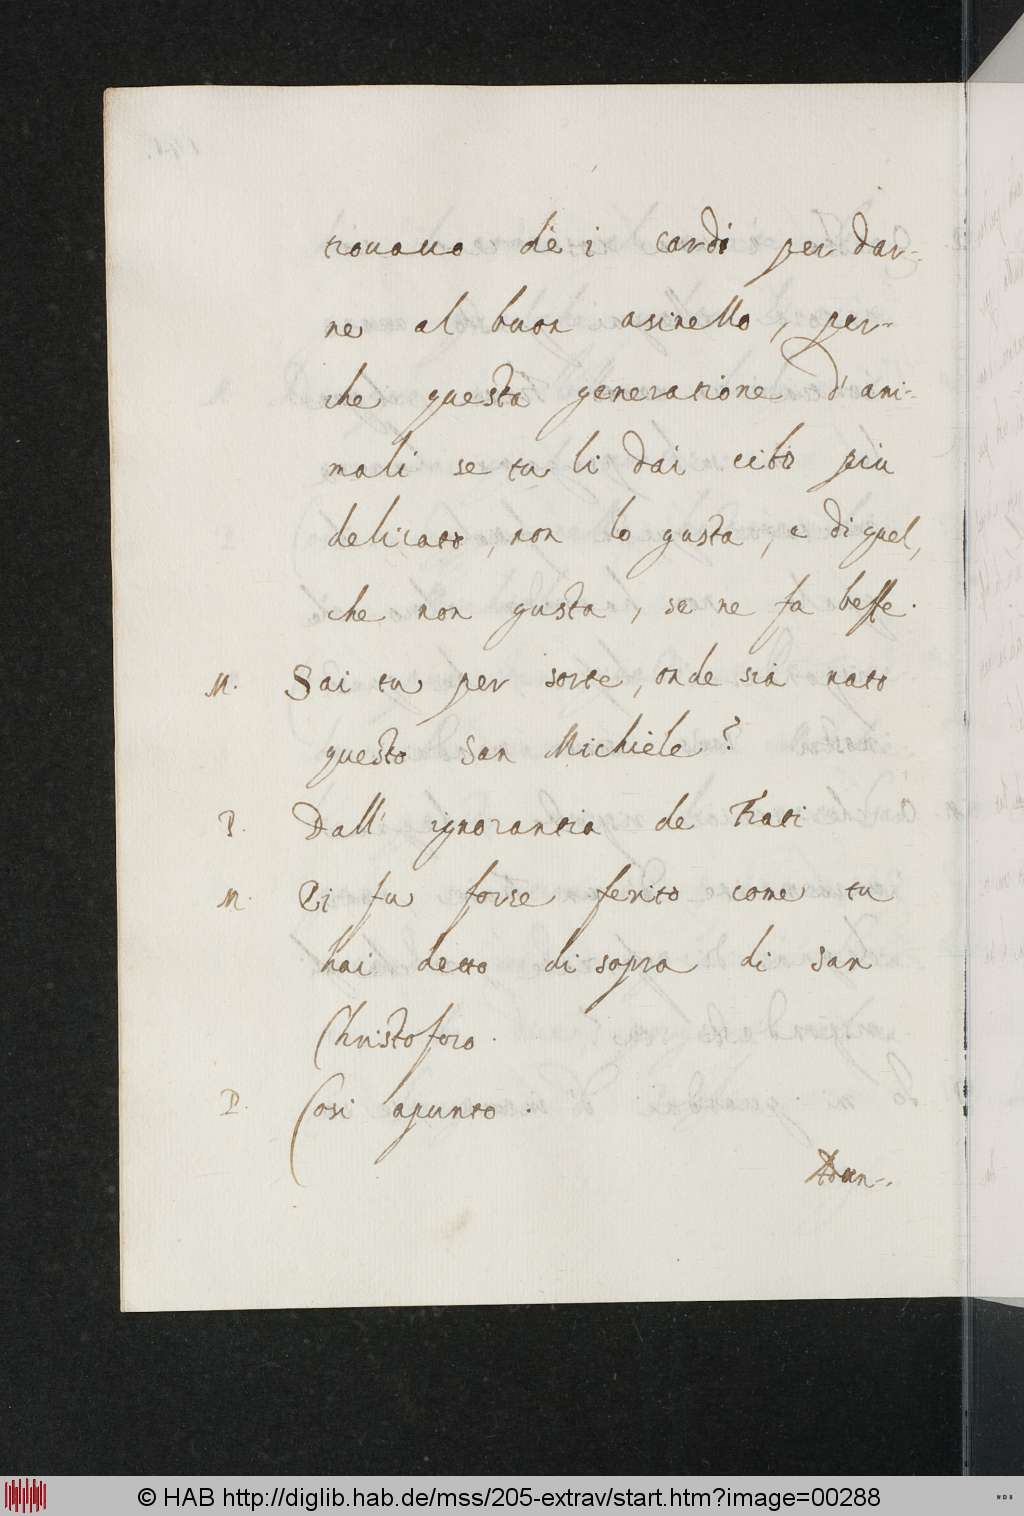 trouauo de i cardi per dar-
ne al buon asinello, per-
che questa generatione d'ani-
mali se tu li dai cibo più
delicato, non lo gusta, e di quel,
che non gusta, se ne fa beffe.
M. Sai tu per sorte, onde sia nato
questo San Michiele?
P. Dall' ignorantia de Frati
M. Ei fu forse ferito come tu
hai detto di sopra di San
Christoforo.
P. Cosi apunto.
© HAB http://diglib.hab.de/mss/205-extrav/start.htm?image=00288